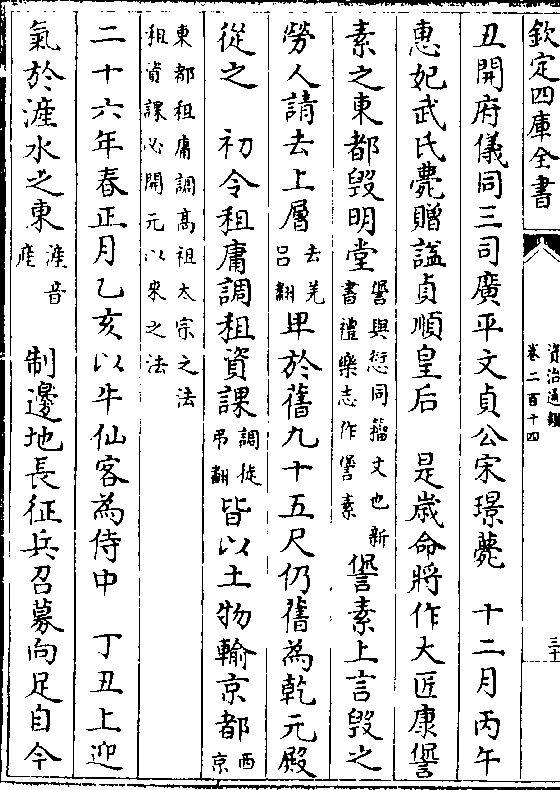 欽定四庫全書
資治通鑑
卷二百十四
三十
丑開府儀同三司廣平文貞公宋璟薨　十二月丙午
惠妃武氏薨贈諡貞順皇后　是歲命將作大匠康𠎝
素之東都毁明堂𠎝與愆同籀文也新
書禮樂志作𠎝素𠎝素上言毁之
勞人請去上層去羌
吕翻卑於舊九十五尺仍舊為乾元殿
從之　初令租庸調租資課調徒
弔翻皆以土物輸京都西
京
東都租庸調髙祖太宗之法
租資課必開元以來之法
二十六年春正月乙亥以牛仙客為侍中　丁丑上迎
氣於滻水之東滻音
産　制邊地長征兵召募向足自今